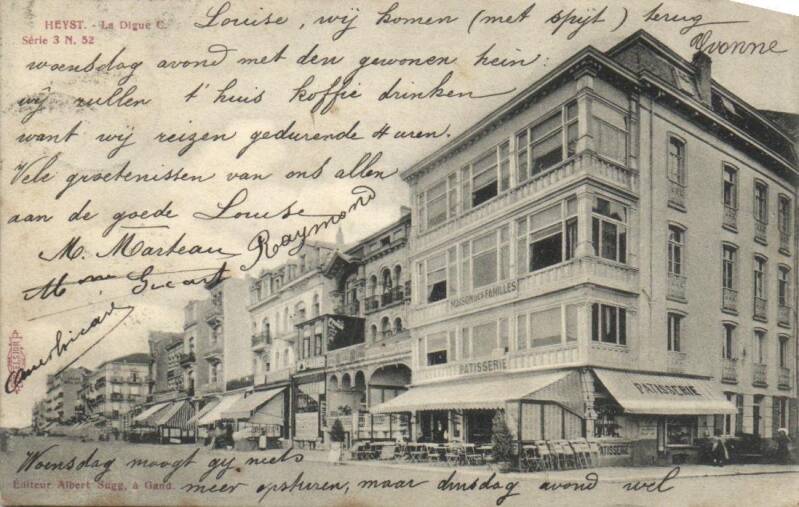 HEYST. - La Digue C.
Série 3 N. 52
Louise, wij komen (met spijt) terug
Yvonne
woensdag avond met den gewonen trein:
wij zullen t'huis koffie drinken
want wij reizen gedurende 4 uren.
Vele groetenissen van ons allen
aan de goede Louise
M. Marteau
Raymond
MAISON DES FAMILLES
PATISSERIE
PATISSERIE
PATISSERIE
Woensdag moogt gij niets
meer opsturen, maar dinsdag avond wel
Editeur Albert Sugg, à Gand.